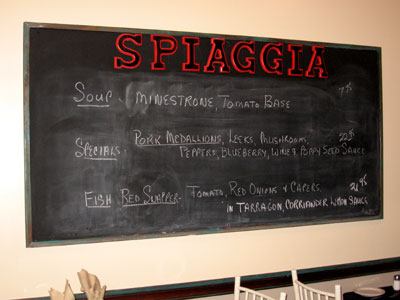 SPIAGGIA
SOUP - MINESTRONE, TOMATO BASE
SPECIALS - PORK MEDALLIONS, LEEKS, MUSHROOMS,
PEPPERS, BLUEBERRY, WINE & POPPY SEED SAUCE
FISH RED SNAPPER - TOMATO, RED ONIONS & CAPERS,
IN TARRAGON, CORRIANDER LEMON SAUCE